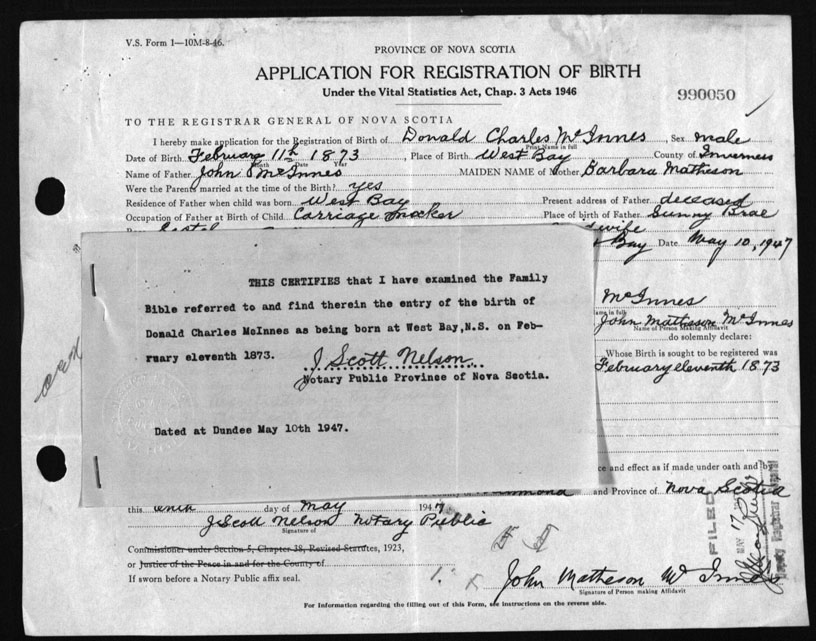 V.S. Form 1—10M-8-46.
PROVINCE OF NOVA SCOTIA
APPLICATION FOR REGISTRATION OF BIRTH
Under the Vital Statistics Act, Chap. 3 Acts 1946
990050
TO THE REGISTRAR GENERAL OF NOVA SCOTIA
I hereby make application for the Registration of Birth of Donald Charles McInnes, Sex male
Print Name in full
Date of Birth February 11th 1873, Place of Birth West Bay County of Inverness
Month Date Year
Name of Father John McInnes MAIDEN NAME of Mother Barbara Matheson
Were the Parents married at the time of the Birth? yes
Residence of Father when child was born West Bay Present address of Father deceased
Occupation of Father at Birth of Child Carriage Maker Place of birth of Father Sunny Brae
Bay Date May 10, 1947
THIS CERTIFIES that I have examined the Family
Bible referred to and find therein the entry of the birth of
Donald Charles McInnes as being born at West Bay, N.S. on Feb-
ruary eleventh 1873.
J Scott Nelson
Notary Public Province of Nova Scotia.
Dated at Dundee May 10th 1947.
McInnes
in full
John Matheson McInnes
Name of Person Making Affidavit
do solemnly declare:
Whose Birth is sought to be registered was
February eleventh 1873
and effect as if made under oath and by
and Province of Nova Scotia
this day of May 1947
J Scott Nelson Notary Public
Signature of
Commissioner under Section 5, Chapter 38, Revised Statutes, 1923,
or Justice of the Peace in and for the County of
If sworn before a Notary Public affix seal.
John Matheson McInnes
Signature of Person making Affidavit
FILED
MAY 17
Deputy Registrar General
For Information regarding the filling out of this Form, see instructions on the reverse side.